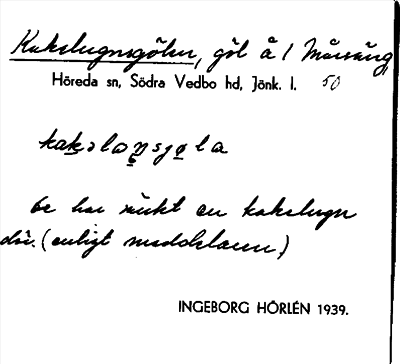 Kakelugnsgölen, göl å 1 Mårsäng,
Höreda sn, Södra Vedbo hd, Jönk. l. 50
kakəlaŋsgøla
de har mükt en kakelugn
där. (enligt meddelaren)
INGEBORG HÖRLÉN 1939.